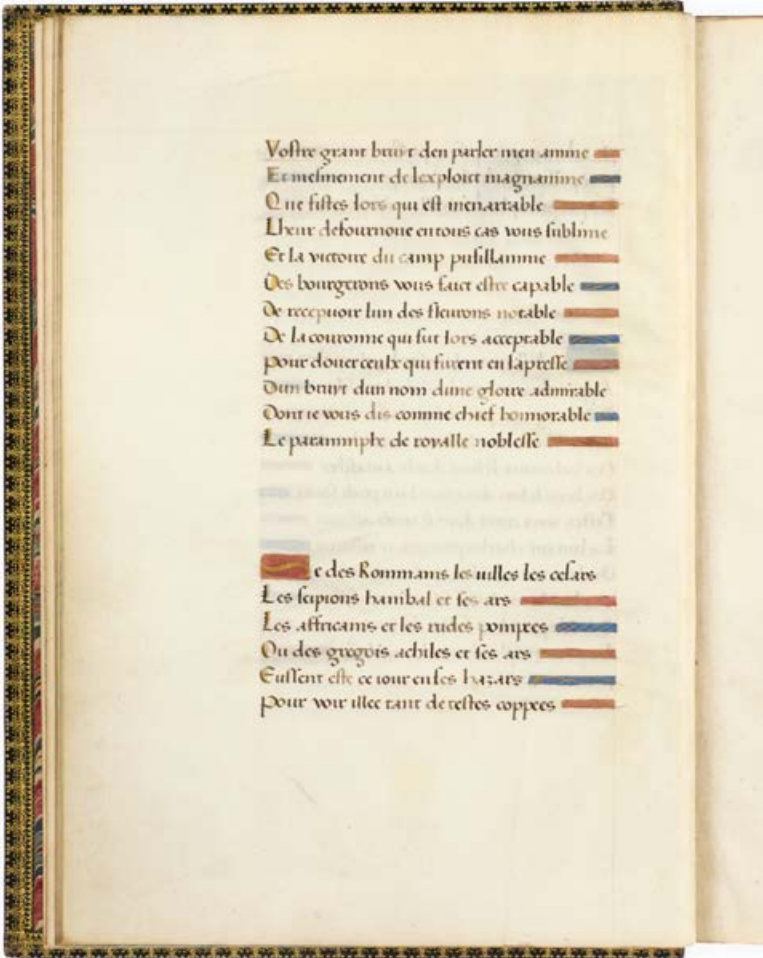 Vostre grant bruyt den parler men anime
Et mesmement de lexploict magnanime
Que fistes lors qui est inenarrable
Lheur de fournoue en tous cas vous sublime
Et la victoire du camp pusillanime
Des bourgerons vous faict estre capable
De recepuoir lun des fleurons notable
De la couronne qui fut lors acceptable
Pour douer ceulx qui furent en lapresse
Dun bruyt dun nom dune gloire admirable
Dont ie vous dis comme chief honnorable
Le paranimphe de royalle noblesse
Se des Rommains les iulles les cesars
Les scipions hanibal et ses ars
Les affricams et les rudes pompees
Ou des gregois achiles et ses ars
Eussent este ce iour en ses hazars
Pour voir illec tant de testes coppees